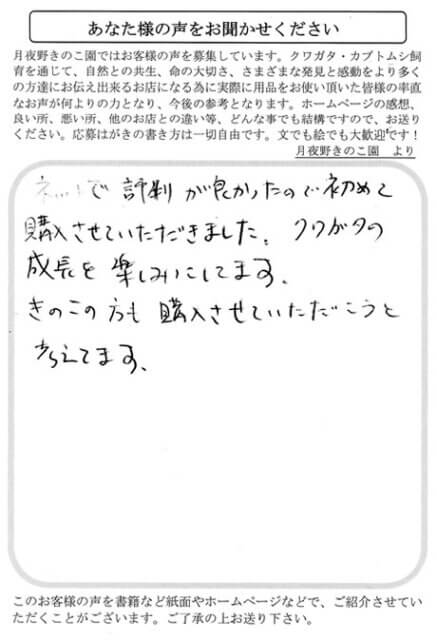 あなた様の声をお聞かせください
月夜野きのこ園ではお客様の声を募集しています。クワガタ・カブトムシ飼
育を通じて、自然との共生、命の大切さ、さまざまな発見と感動をより多く
の方達にお伝え出来るお店になる為に実際に用品をお使い頂いた皆様の率直
なお声が何よりの力となり、今後の参考となります。ホームページの感想、
良い所、悪い所、他のお店との違い等、どんな事でも結構ですので、お送り
ください。応募はがきの書き方は一切自由です。文でも絵でも大歓迎です！
月夜野きのこ園 より
ネットで評判が良かったので初めて
購入させていただきました。クワガタの
成長を楽しみにしてます。
きのこの方も購入させていただこうと
考えてます。
このお客様の声を書籍など紙面やホームページなどで、ご紹介させてい
ただくことがございます。ご了承の上お送り下さい。